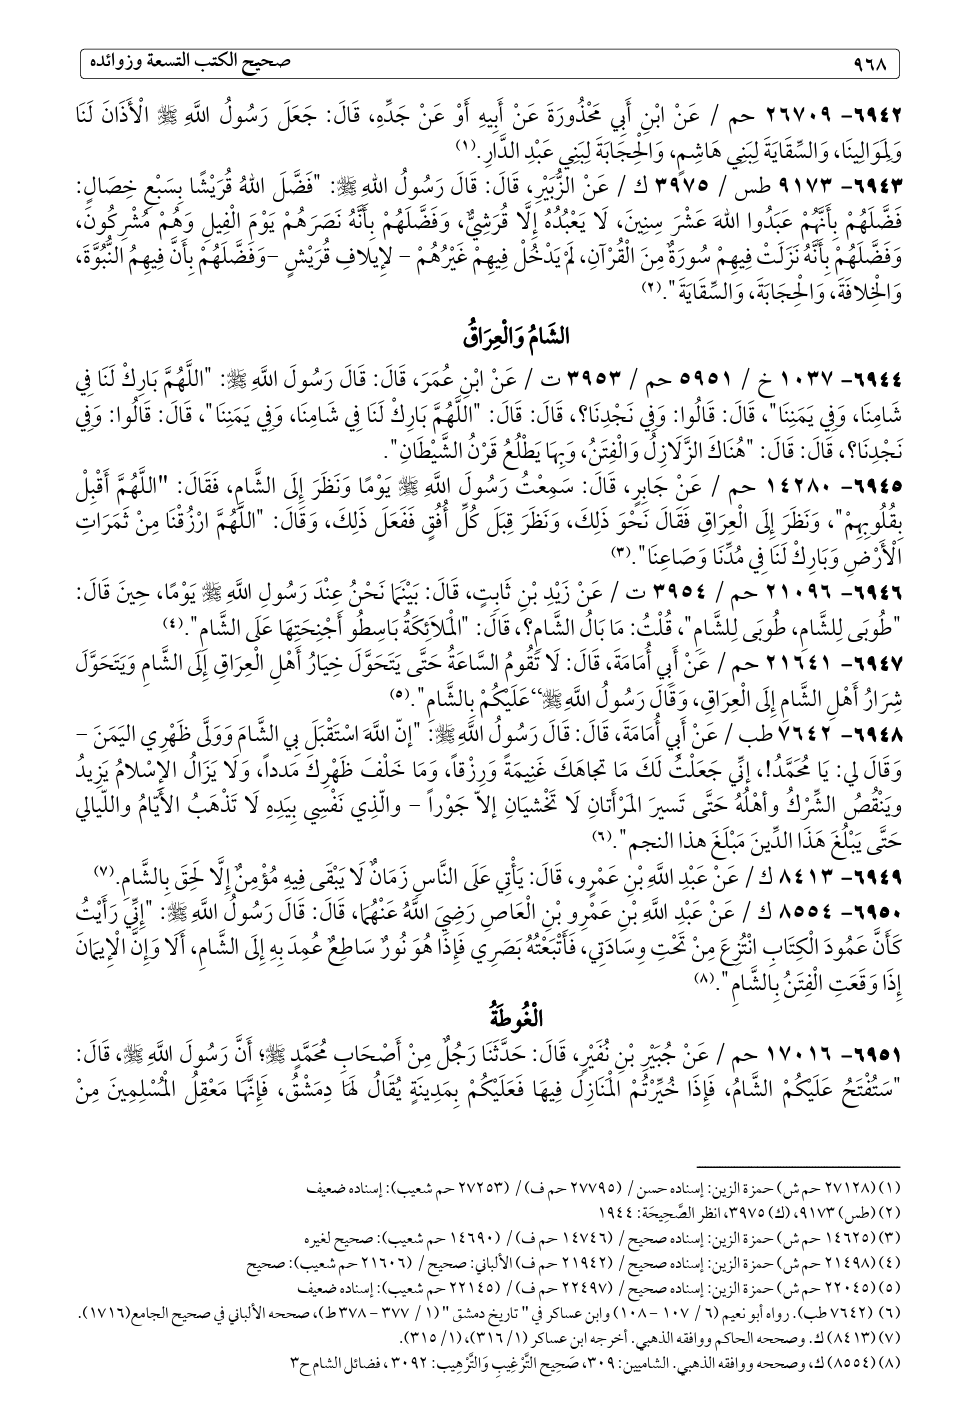 ٩٦٨ صحيح الكتب التسعة وزوائده
٦٩٤٢- ٢٦٧٠٩ حم / عَنْ ابْنِ أَبِي مَحْذُورَةَ عَنْ أَبِيهِ أَوْ عَنْ جَدِّهِ، قَالَ: جَعَلَ رَسُولُ اللَّهِ ﷺ الْأَذَانَ لَنَا
وَلِمَوَالِينَا، وَالسِّقَايَةَ لِبَنِي هَاشِمٍ، وَالْحِجَابَةَ لِبَنِي عَبْدِ الدَّارِ.(١)
٦٩٤٣- ٩١٧٣ طس / ٣٩٧٥ ك / عَنْ الزُّبَيْرِ، قَالَ: قَالَ رَسُولُ اللهِ ﷺ: "فَضَّلَ اللهُ قُرَيْشًا بِسَبْعِ خِصَالٍ:
فَضَّلَهُمْ بِأَنَّهُمْ عَبَدُوا اللهَ عَشْرَ سِنِينَ، لَا يَعْبُدُهُ إِلَّا قُرَشِيٌّ، وَفَضَّلَهُمْ بِأَنَّهُ نَصَرَهُمْ يَوْمَ الْفِيلِ وَهُمْ مُشْرِكُونَ،
وَفَضَّلَهُمْ بِأَنَّهُ نَزَلَتْ فِيهِمْ سُورَةٌ مِنَ الْقُرْآنِ، لَمْ يَدْخُلْ فِيهِمْ غَيْرُهُمْ – لإِيلافِ قُرَيْشٍ –وَفَضَّلَهُمْ بِأَنَّ فِيهِمُ النُّبُوَّةَ،
وَالْخِلافَةَ، وَالْحِجَابَةَ، وَالسِّقَايَةَ".(٢)
الشَامُ وَالْعِرَاقُ
٦٩٤٤- ١٠٣٧ خ / ٥٩٥١ حم / ٣٩٥٣ ت / عَنْ ابْنِ عُمَرَ، قَالَ: قَالَ رَسُولَ اللَّهِ ﷺ: "اللَّهُمَّ بَارِكْ لَنَا فِي
شَامِنَا، وَفِي يَمَنِنَا"، قَالَ: قَالُوا: وَفِي نَجْدِنَا؟، قَالَ: قَالَ: "اللَّهُمَّ بَارِكْ لَنَا فِي شَامِنَا، وَفِي يَمَنِنَا"، قَالَ: قَالُوا: وَفِي
نَجْدِنَا؟، قَالَ: قَالَ: "هُنَاكَ الزَّلَازِلُ وَالْفِتَنُ، وَبِهَا يَطْلُعُ قَرْنُ الشَّيْطَانِ".
٦٩٤٥- ١٤٢٨٠ حم / عَنْ جَابِرٍ، قَالَ: سَمِعْتُ رَسُولَ اللَّهِ ﷺ يَوْمًا وَنَظَرَ إِلَى الشَّامِ، فَقَالَ: "اللَّهُمَّ أَقْبِلْ
بِقُلُوبِهِمْ"، وَنَظَرَ إِلَى الْعِرَاقِ فَقَالَ نَحْوَ ذَلِكَ، وَنَظَرَ قِبَلَ كُلِّ أُفُقٍ فَفَعَلَ ذَلِكَ، وَقَالَ: "اللَّهُمَّ ارْزُقْنَا مِنْ ثَمَرَاتِ
الْأَرْضِ وَبَارِكْ لَنَا فِي مُدِّنَا وَصَاعِنَا".(٣)
٦٩٤٦- ٢١٠٩٦ حم / ٣٩٥٤ ت / عَنْ زَيْدِ بْنِ ثَابِتٍ، قَالَ: بَيْنَمَا نَحْنُ عِنْدَ رَسُولِ اللَّهِ ﷺ يَوْمًا، حِينَ قَالَ:
"طُوبَى لِلشَّامِ، طُوبَى لِلشَّامِ"، قُلْتُ: مَا بَالُ الشَّامِ؟، قَالَ: "الْمَلَائِكَةُ بَاسِطُو أَجْنِحَتِهَا عَلَى الشَّامِ".(٤)
٦٩٤٧- ٢١٦٤١ حم / عَنْ أَبِي أُمَامَةَ، قَالَ: لَا تَقُومُ السَّاعَةُ حَتَّى يَتَحَوَّلَ خِيَارُ أَهْلِ الْعِرَاقِ إِلَى الشَّامِ وَيَتَحَوَّلَ
شِرَارُ أَهْلِ الشَّامِ إِلَى الْعِرَاقِ، وَقَالَ رَسُولُ اللَّهِ ﷺ“عَلَيْكُمْ بِالشَّامِ".(٥)
٦٩٤٨- ٧٦٤٢ طب / عَنْ أَبِي أُمَامَةَ، قَالَ: قَالَ رَسُولُ اللَّهِ ﷺ: "إنّ اللَّهَ اسْتَقْبَلَ بِي الشَّامَ وَوَلَّى ظَهْرِي اليَمَنَ –
وَقَالَ لِي: يَا مُحَمَّدُ!، إنِّي جَعَلْتُ لَكَ مَا تجاهَكَ غَنِيمَةً وَرِزْقاً، وَمَا خَلْفَ ظَهْرِكَ مَدداً، وَلَا يَزَالُ الإِسْلامُ يَزِيدُ
ويَنْقُصُ الشِّرْكُ وأهْلُهُ حَتَّى تَسيرَ المَرْأَتانِ لَا تَخْشيَانِ إلاّ جَوْراً – والَّذِي نَفْسِي بِيَدِهِ لَا تَذْهَبُ الأَيَّامُ واللّيالي
حَتَّى يَبْلُغَ هَذَا الدِّينَ مَبْلَغَ هذا النجم".(٦)
٦٩٤٩- ٨٤١٣ ك / عَنْ عَبْدِ اللَّهِ بْنِ عَمْرٍو، قَالَ: يَأْتِي عَلَى النَّاسِ زَمَانٌ لَا يَبْقَى فِيهِ مُؤْمِنٌ إِلَّا لَحِقَ بِالشَّامِ.(٧)
٦٩٥٠- ٨٥٥٤ ك / عَنْ عَبْدِ اللَّهِ بْنِ عَمْرِو بْنِ الْعَاصِ رَضِيَ اللَّهُ عَنْهُمَا، قَالَ: قَالَ رَسُولُ اللَّهِ ﷺ: "إِنِّي رَأَيْتُ
كَأَنَّ عَمُودَ الْكِتَابِ انْتُزِعَ مِنْ تَحْتِ وِسَادَتِي، فَأَتْبَعْتُهُ بَصَرِي فَإِذَا هُوَ نُورٌ سَاطِعٌ عُمِدَ بِهِ إِلَى الشَّامِ، أَلَا وَإِنَّ الْإِيمَانَ
إِذَا وَقَعَتِ الْفِتَنُ بِالشَّامِ".(٨)
الْغُوطَةُ
٦٩٥١- ١٧٠١٦ حم / عَنْ جُبَيْرِ بْنِ نُفَيْرٍ، قَالَ: حَدَّثَنَا رَجُلٌ مِنْ أَصْحَابِ مُحَمَّدٍ ﷺ؛ أَنَّ رَسُولَ اللَّهِ ﷺ، قَالَ:
"سَتُفْتَحُ عَلَيْكُمْ الشَّامُ، فَإِذَا خُيِّرْتُمْ الْمَنَازِلَ فِيهَا فَعَلَيْكُمْ بِمَدِينَةٍ يُقَالُ لَهَا دِمَشْقُ، فَإِنَّهَا مَعْقِلُ الْمُسْلِمِينَ مِنْ
(١) (٢٧١٢٨ حم ش) حمزة الزين: إسناده حسن / (٢٧٧٩٥ حم ف) / (٢٧٢٥٣ حم شعيب): إسناده ضعيف
(٢) (طس) ٩١٧٣، (ك) ٣٩٧٥، انظر الصَّحِيحَة: ١٩٤٤
(٣) (١٤٦٢٥ حم ش) حمزة الزين: إسناده صحيح / (١٤٧٤٦ حم ف) / (١٤٦٩٠ حم شعيب): صحيح لغيره
(٤) (٢١٤٩٨ حم ش) حمزة الزين: إسناده صحيح / (٢١٩٤٢ حم ف) الألباني: صحيح / (٢١٦٠٦ حم شعيب): صحيح
(٥) (٢٢٠٤٥ حم ش) حمزة الزين: إسناده صحيح / (٢٢٤٩٧ حم ف) / (٢٢١٤٥ حم شعيب): إسناده ضعيف
(٦) (٧٦٤٢ طب). رواه أبو نعيم (٦ / ١٠٧ – ١٠٨) وابن عساكر في " تاريخ دمشق " (١ / ٣٧٧ – ٣٧٨ ط)، صححه الألباني في صحيح الجامع(١٧١٦).
(٧) (٨٤١٣) ك. وصححه الحاكم ووافقه الذهبي. أخرجه ابن عساكر (١/ ٣١٦)، (١/ ٣١٥).
(٨) (٨٥٥٤) ك، وصححه ووافقه الذهبي. الشاميين: ٣٠٩، صَحِيح التَّرْغِيبِ وَالتَّرْهِيب: ٣٠٩٢ ، فضائل الشام ح٣